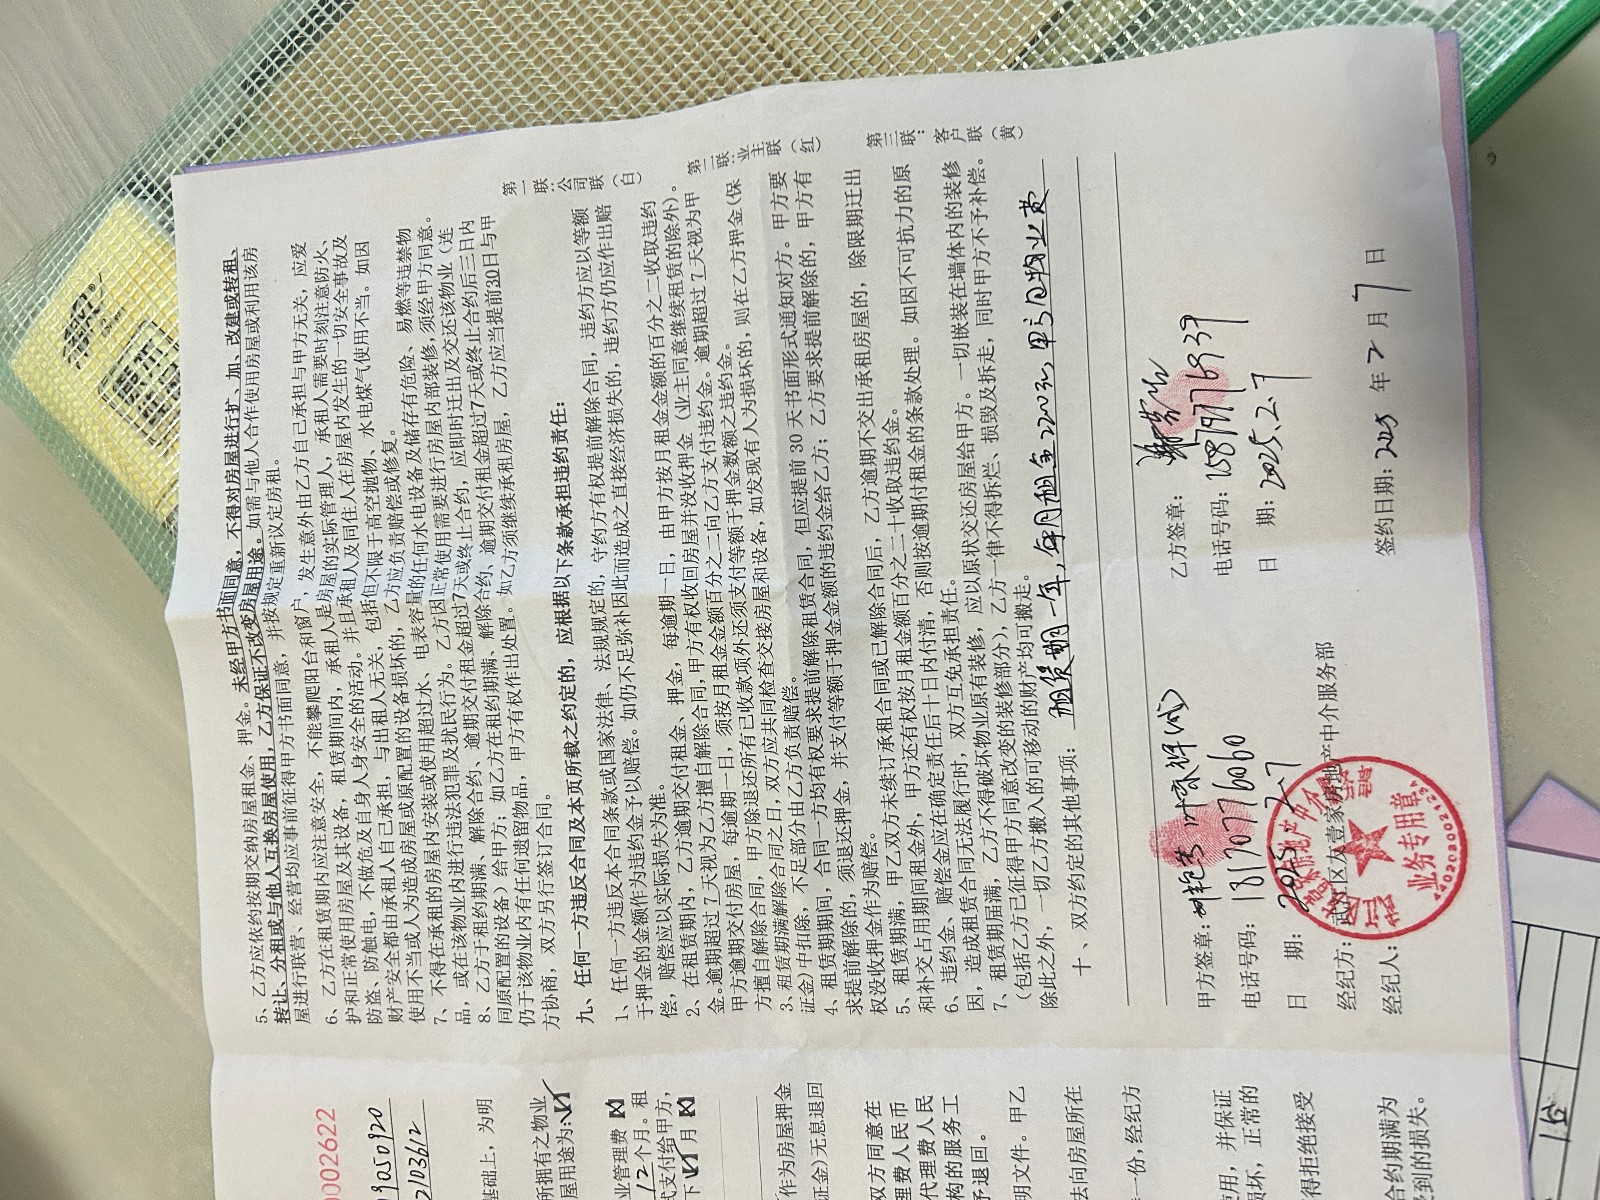 5、乙方应依约按期交纳房屋租金、押金。未经甲方书面同意，不得对房屋进行扩、加、改建或转租、
转让、分租或与他人互换房屋使用，乙方保证不改变房屋用途。如需与他人合作使用房屋或利用该房
屋进行联营、经营均应事前征得甲方书面同意，并按规定重新议定房租。
6、乙方在租赁期内应注意安全，不能攀爬阳台和窗户，发生意外由乙方自己承担与甲方无关，应爱
护和正常使用房屋及其设备，租赁期间内，承租人是房屋的实际管理人，承租人需要时刻注意防火、
防盗、防触电，不做危及自身人身安全的活动。并且承租人及同住人在房屋内发生的一切安全事故及
财产安全都由承租人自己承担，与出租人无关，包括但不限于高空抛物、水电煤气使用不当。如因
使用不当或人为造成房屋或原配置的设备损坏的，乙方应负责赔偿或修复。
7、不得在承租的房屋内安装或使用超过水、电表容量的任何水电设备及储存有危险、易燃等违禁物
品，或在该物业内进行违法犯罪及扰民行为。乙方因正常使用需要进行房屋内部装修，须经甲方同意。
8、乙方于租约期满、解除合约、逾期交付租金超过7天或终止合约，应即时迁出及交还该物业（连
同原配置的设备）给甲方；如乙方在租约期满、解除合约、逾期交付租金超过7天或终止合约后三日内
仍于该物业内有任何遗留物品，甲方有权作出处置。如乙方须继续承租房屋，乙方应当提前30日与甲
方协商，双方另行签订合同。
九、任何一方违反合同及本页所载之约定的，应根据以下条款承担违约责任：
1、任何一方违反本合同条款或国家法律、法规规定的，守约方有权提前解除合同，违约方应以等额
于押金的金额作为违约金予以赔偿。如仍不足弥补因此而造成之直接经济损失的，违约方仍应作出赔
偿，赔偿应以实际损失为准。
2、在租赁期内，乙方逾期交付租金、押金，每逾期一日，由甲方按月租金金额的百分之二收取违约
金。逾期超过7天视为乙方擅自解除合同，甲方有权收回房屋并没收押金（业主同意继续租赁的除外）。
甲方逾期交付房屋，每逾期一日，须按月租金金额百分之二向乙方支付违约金。逾期超过7天视为甲
方擅自解除合同，甲方除退还所有已收款项外还须支付等额于押金数额之违约金。
3、租赁期满解除合同之日，双方应共同检查交接房屋和设备，如发现有人为损坏的，则在乙方押金（保
证金）中扣除，不足部分由乙方负责赔偿。
4、租赁期期间，合同一方均有权要求提前解除租赁合同，但应提前30天书面形式通知对方。甲方要
求提前解除的，须退还押金，并支付等额于押金金额的违约金给乙方；乙方要求提前解除的，甲方有
权没收押金作为赔偿。
5、租赁期满，甲乙双方未续订承租合同或已解除合同后，乙方逾期不交出承租房屋的，除限期迁出
和补交占用期间租金外，甲方还有权按月租金额百分之二十收取违约金。
6、违约金、赔偿金应在确定责任后十日内付清，否则按逾期付租金的条款处理。如因不可抗力的原
因，造成租赁合同无法履行时，双方互免承担责任。
7、租赁期届满，乙方不得破坏物业原有装修，应以原状交还房屋给甲方。一切嵌装在墙体内的装修
（包括乙方已征得甲方同意改变的装修部分），乙方一律不得拆烂、损毁及拆走，同时甲方不予补偿。
除此之外，一切乙方搬入的可移动的财产均可搬走。
十、双方约定的其他事项：租赁期一年，年月租金2200元，甲方包物业费
甲方签章：
乙方签章：
电话号码：18170776060
电话号码：15879776939
日 期：2025.2.7
日 期：2025.2.7
经纪方：
区友壹家房地产中介服务部
经纪人：
签约日期：2025 年 2 月 7 日
业务专用章
第一联：公司联（白）
第二联：业主联（红）
第三联：客户联（黄）
002622
9050920
2103612
基础上，为明
所拥有之物业
屋用途为:
业管理费
12个月。租
式支付给甲方，
月
作为房屋押金
证金）无息退回
双方同意在
理费人民币
代理费人民
构的服务工
予退回。
明文件。甲乙
法向房屋所在
一份，经纪方
使用，并保证
损坏，正常的
得拒绝接受
合约期满为
受到的损失。